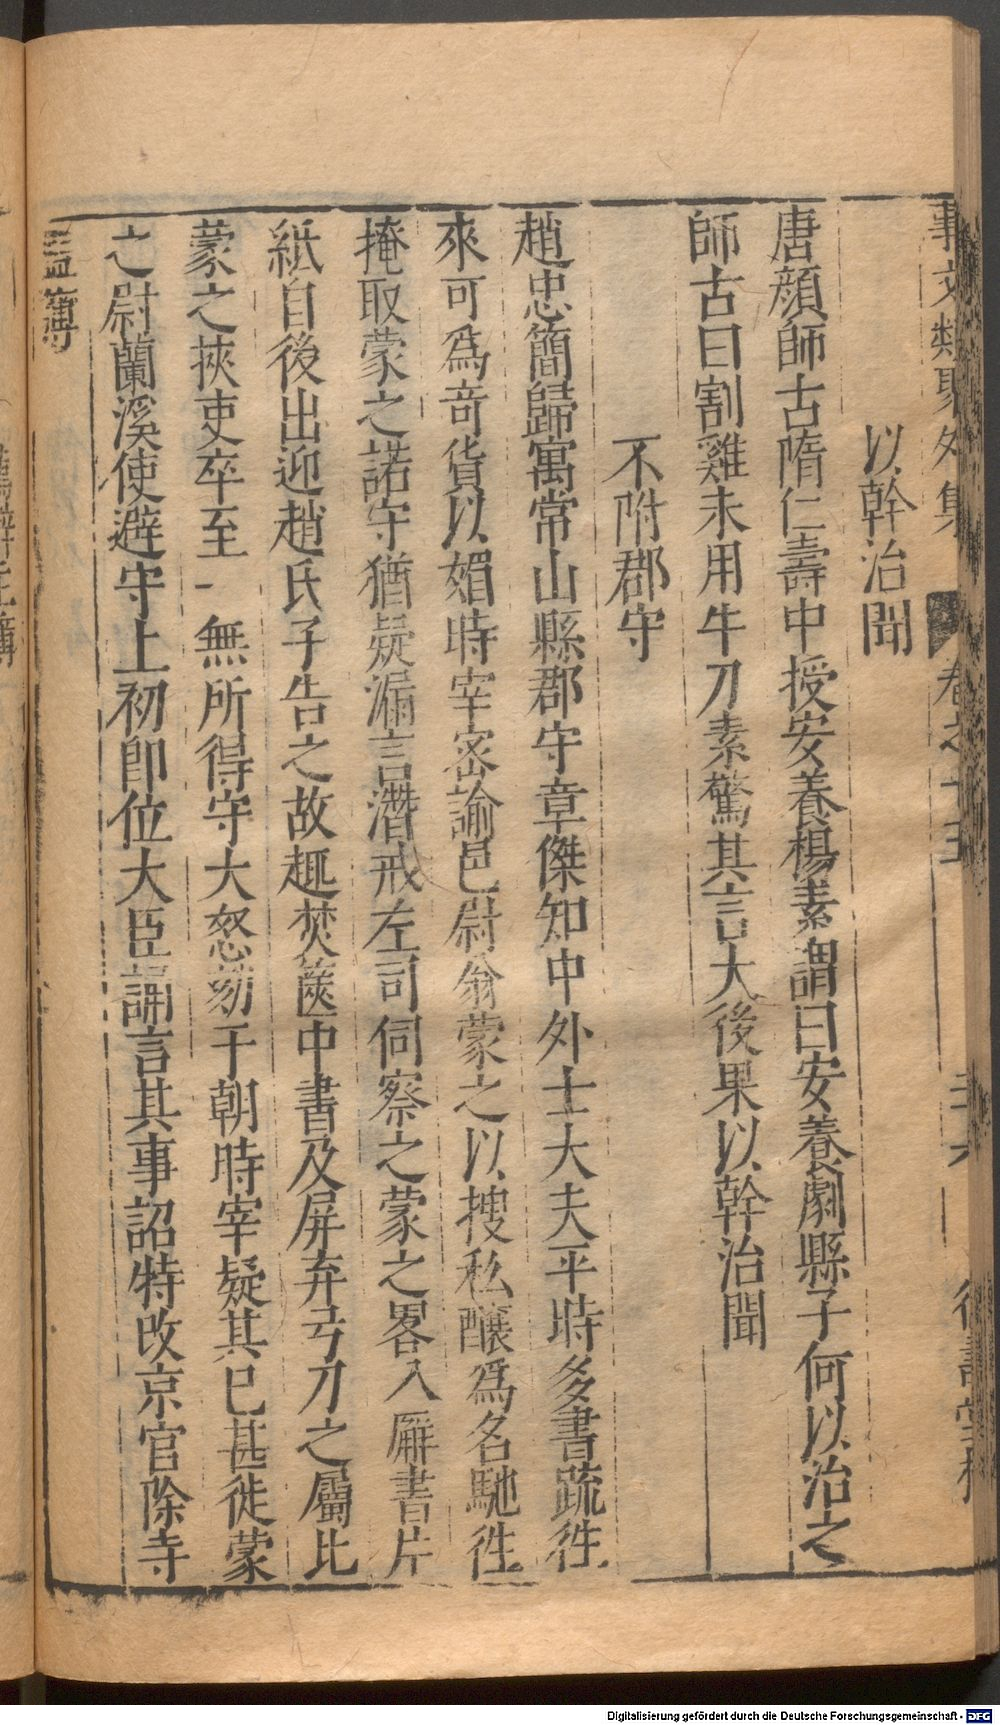 事文類聚外集 卷之十五
以幹治聞
唐顔師古隋仁壽中授安養楊素謂曰安養劇縣子何以治之
師古曰割雞未用牛刀素驚其言大後果以幹治聞
不附郡守
趙忠簡歸寓常山縣郡守章傑知中外士大夫平時多書疏徃
來可爲竒貨以媚時宰密諭邑尉翁蒙之以搜私釀爲名馳徃
掩取蒙之諾守猶疑漏言潛戒左司伺察之蒙之畧入廨書片
紙自後出迎趙氏子告之故趣焚篋中書及屏弃弓刀之屬比
蒙之挾吏卒至一無所得守大怒劾于朝時宰疑其已甚徙蒙
之尉蘭溪使避守上初即位大臣誦言其事詔特改京官除寺
監簿
Digitalisierung gefördert durch die Deutsche Forschungsgemeinschaft - DFG